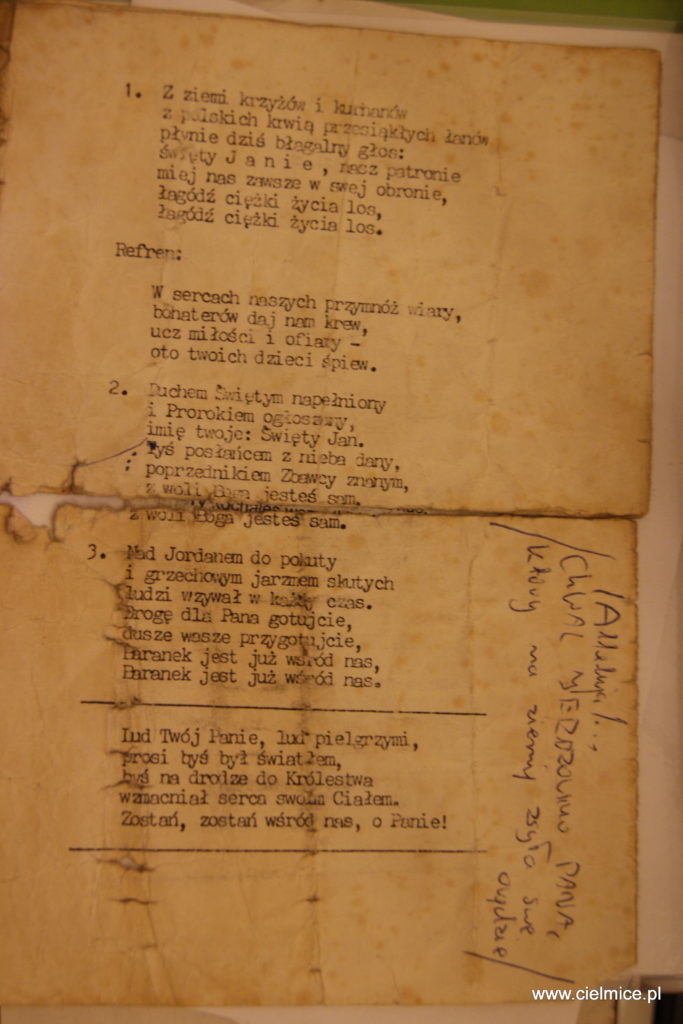 1. Z ziemi krzyżów i kurhanów
z polskich krwią przesiąkłych łanów
płynie dziś błagalny głos:
święty J a n i e , nasz patronie
miej nas zawsze w swej obronie,
łagódź ciężki życia los,
łagódź ciężki życia los.
Refren:
W sercach naszych przymnóż wiary,
bohaterów daj nam krew,
ucz miłości i ofiary –
oto twoich dzieci śpiew.
2. Duchem Świętym napełniony
i Prorokiem ogłoszony,
imię twoje: Święty Jan.
Tyś posłańcem z nieba dany,
poprzednikiem Zbawcy znanym,
z woli Boga jesteś sam.
z woli Boga jesteś sam.
3. Nad Jordanem do pokuty
i grzechowym jarzmem skutych
ludzi wzywał w każdy czas.
Drogę dla Pana gotujcie,
dusze wasze przygotujcie,
Baranek jest już wśród nas,
Baranek jest już wśród nas.
Lud Twój Panie, lud pielgrzymi,
prosi byś był światłem,
byś na drodze do Królestwa
wzmacniał serca swoim Ciałem.
Zostań, zostań wśród nas, o Panie!
/Alleluja/...
Chwal PANA,
/który na ziemię zsyła swe orędzie/
www.cielmice.pl